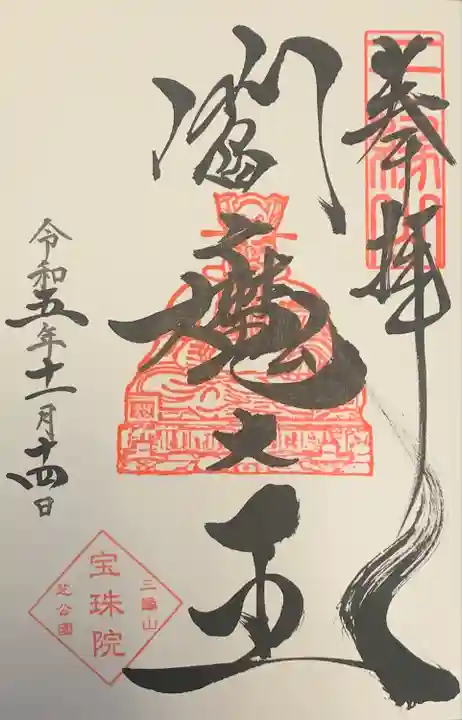 奉拝
閻魔大王
令和五年十一月十四日
三縁山
宝珠院
芝公園